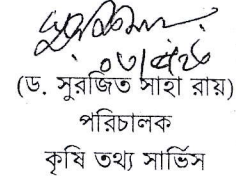 (ড. সুরজিত সাহা রায়)
পরিচালক
কৃষি তথ্য সার্ভিস